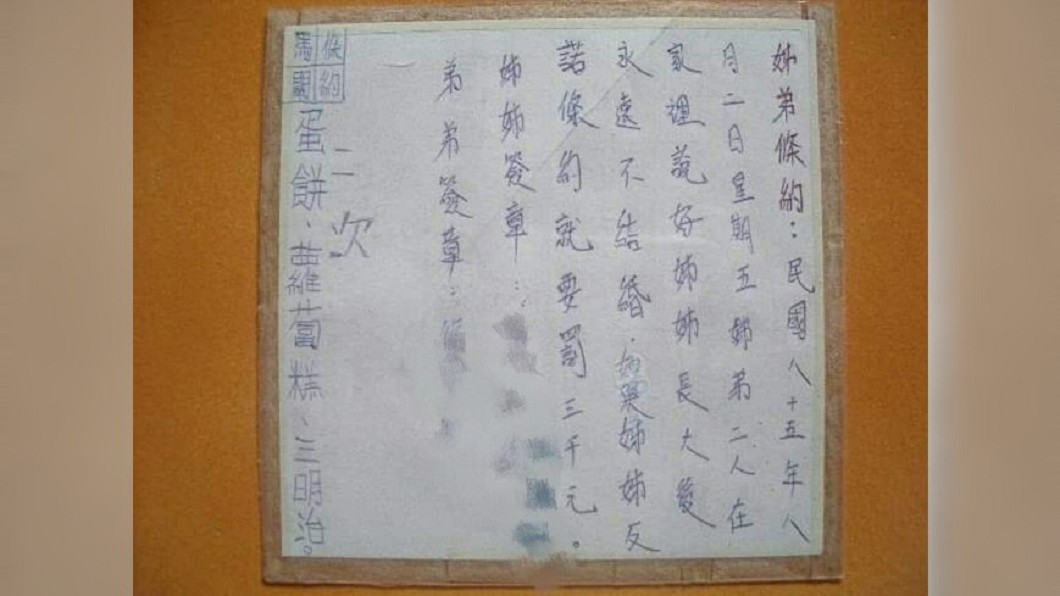 姊弟條約：民國八十五年八
月二日星期五姊弟二人在
家裡說好姊姊長大後
永遠不結婚．如果姊姊反
諾條約就要罰三千元。
姊姊簽章：
弟弟簽章：
二次
條約
蛋餅、蘿蔔糕、三明治。